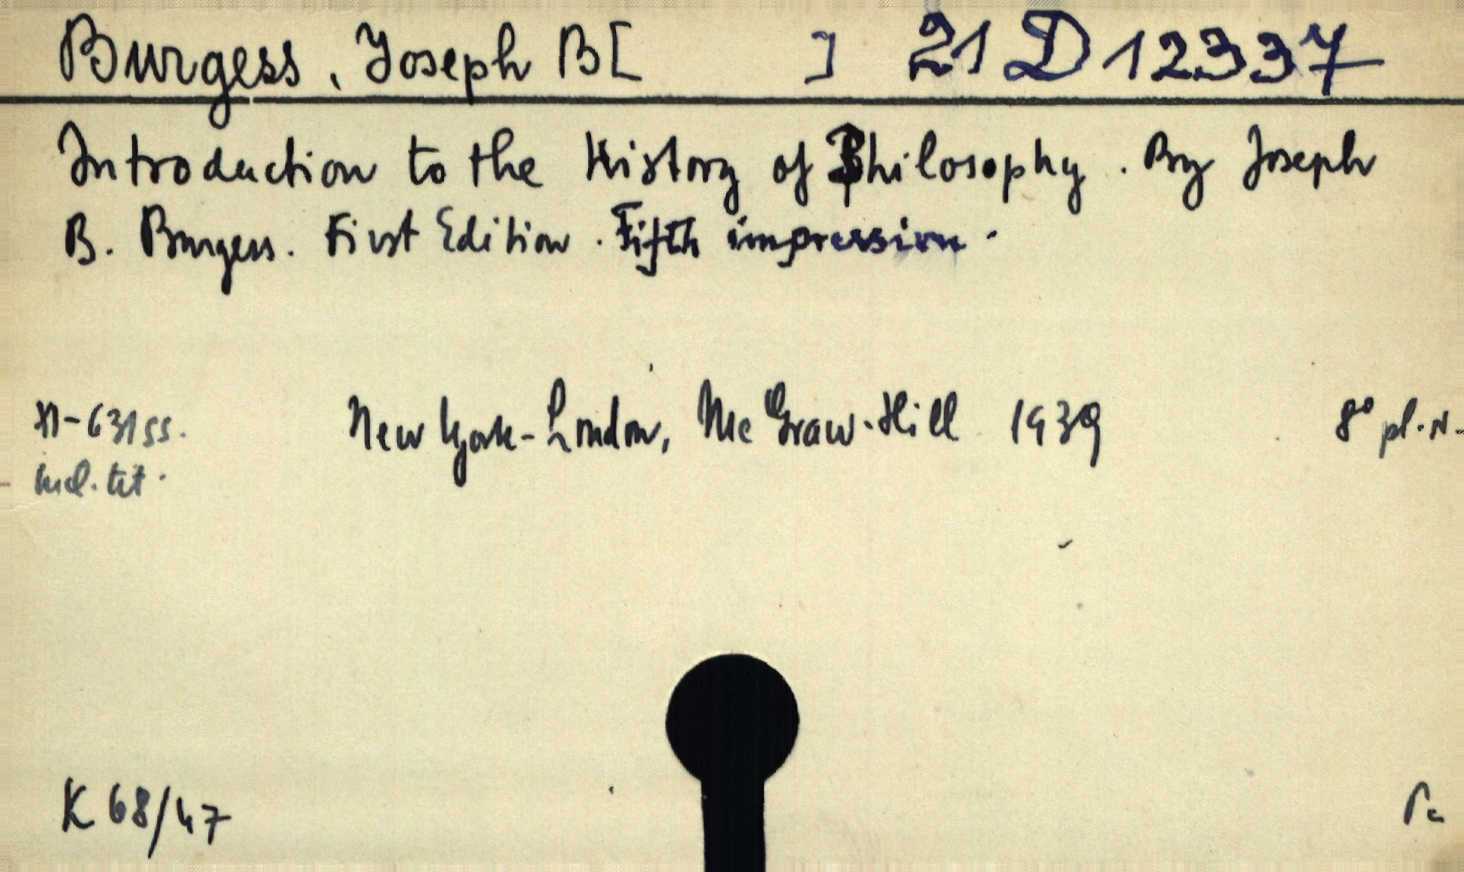 Burgess, Joseph B[ ] 21 D 12337
Introduction to the History of Philosophy. By Joseph
B. Burgess. First Edition. Fifth impression.
New York-London, Mc Graw-Hill 1939 8° pl. N.
XI-631 ss.
incl. tit.
K 68/47